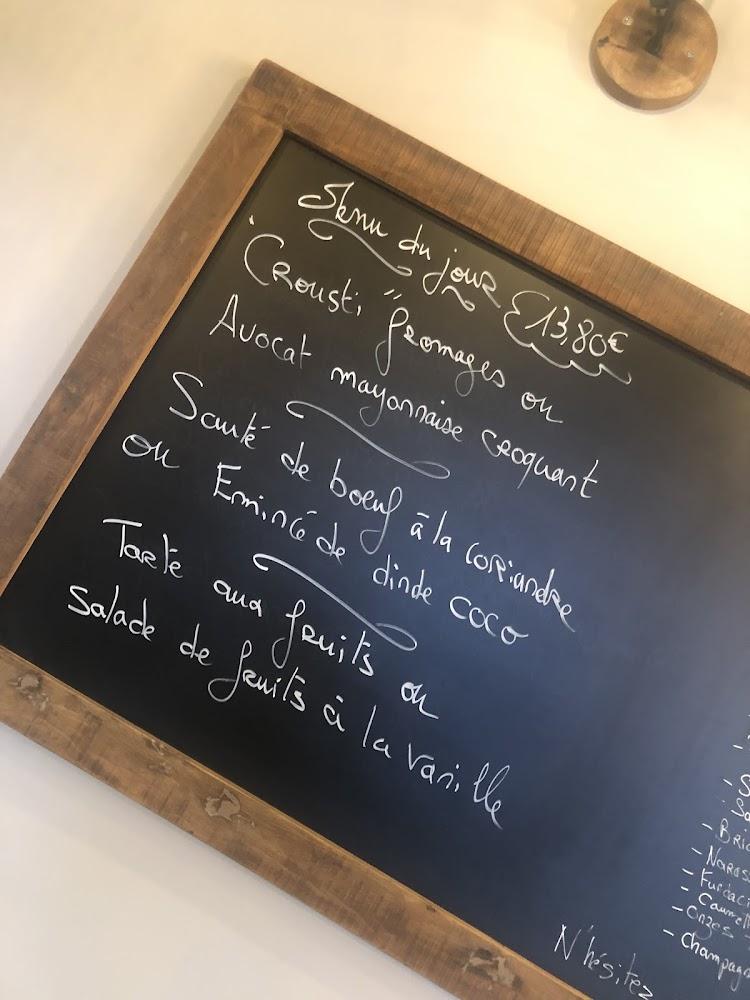 Menu du jour 13,80€
"Crousti" fromages ou
Avocat mayonnaise croquant
Sauté de boeuf à la coriandre
ou Emincé de dinde coco
Tarte aux fruits ou
Salade de fruits à la vanille
- Champagn
N'hésitez